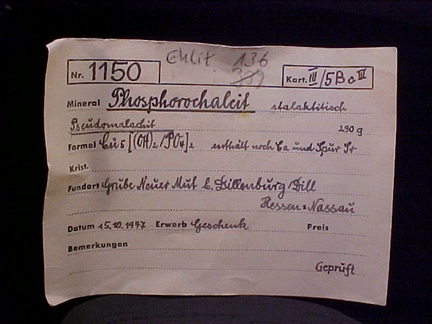 Ehlit 136
Nr. 1150 Kart. III/5BcIII
Mineral Phosphorochalcit stalaktitisch
Pseudomalachit 290 g
Formel Cu5[(OH)2/PO4]2 enthält noch Ca und Spur Sr
Krist.
Fundort Grube Neuer Mut b. Dillenburg/Dill
Hessen-Nassau
Datum 15.10.1947 Erwerb Geschenk Preis
Bemerkungen
Geprüft